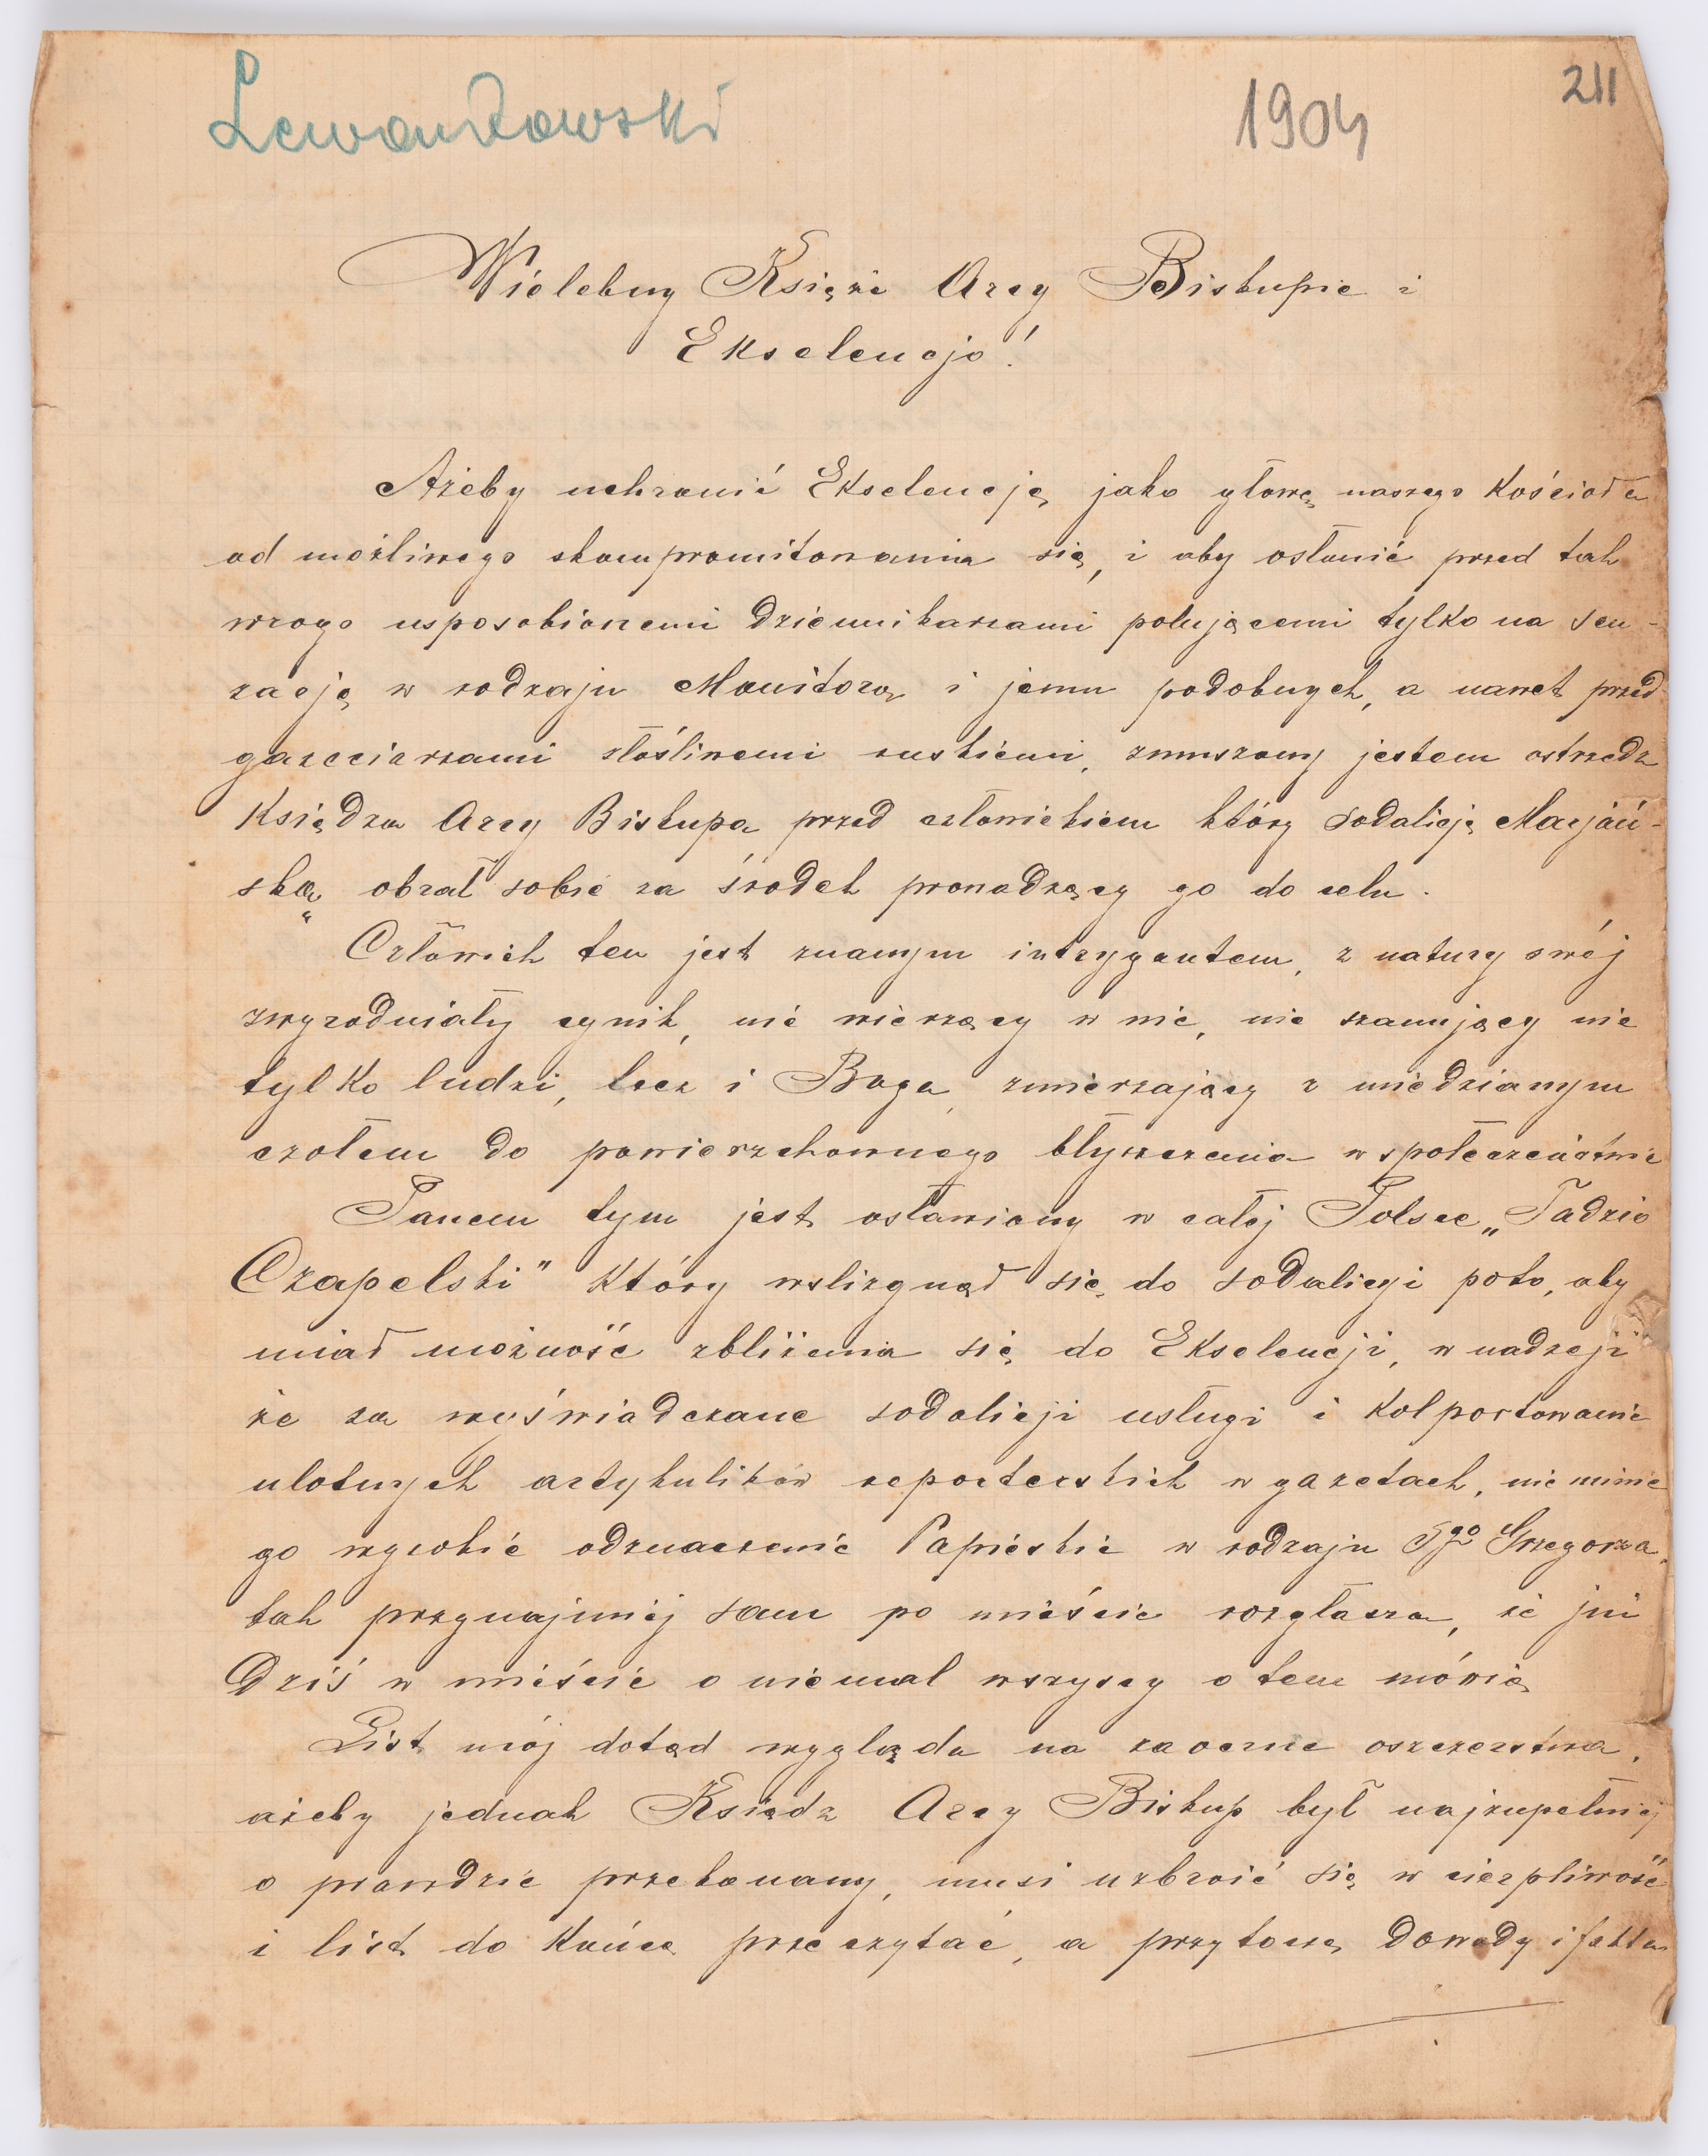 Lewandowski
1904
211
Wielebny Księże Arcy Biskupie i
Ekselencjo!
Ażeby uchronić Ekselencję, jako głowę naszego Kościoła
od możliwego skompromitowania się, i aby osłonić przed tak
wrogo usposobionemi dziennikarzami polującemi tylko na sen-
zację w rodzaju Monitora i jemu podobnych, a nawet przed
gazeciarzami złośliwemi ruskiemi, zmuszony jestem ostrzedz
Księdza Arcy Biskupa przed człowiekiem który Sodalicję Marjań-
ską" obrał sobie za środek prowadzący go do celu.
Człowiek ten jest znanym intrygantem, z natury swéj
zwyrodniały cynik, nie wierzący w nic, nie szanujący nie
tylko ludzi, lecz i Boga, zmierzający z miedzianym
czołem do powierzchownego błyszczenia w społeczeństwie
Panem tym jest osławiony w całej Polsce „Tadzio
Czapelski" który wslizgnął się do sodalicyi poto, aby
miał możność zbliżenia się do Ekselencji, w nadzeji
że za wyświadczane sodalicji usługi i kolportowanie
ulotnych artykulików reporterskich w gazetach, nie minie
go wyrobić odznaczenie Papieskie w rodzaju Sgo Grzegorza,
tak przynajmniej sam po mieście rozgłasza, że już
Dziś w mieście o niemal wszyscy o tem mówią
List mój dotąd wygląda na zaoczne oszczerstwa,
ażeby jednak Ksiądz Arcy Biskup był najzupełniej
o prawdzie przekonany, musi uzbroić się w cierpliwość
i list do końca przeczytać, a przytoczę dowody i fakta